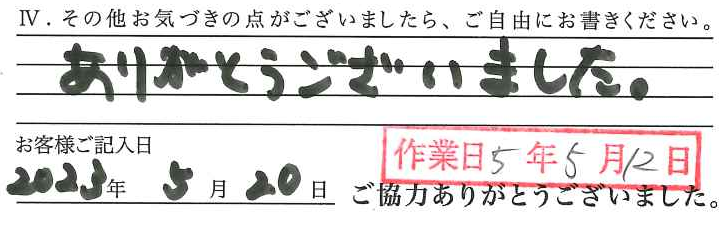 Ⅳ．その他お気づきの点がございましたら、ご自由にお書きください。
ありがとうございました。
お客様ご記入日
作業日5年5月12日
2023年 5月 20日
ご協力ありがとうございました。